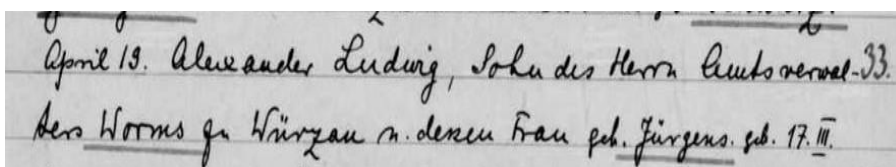 April 19. Alexander Ludwig, Sohn des Herrn Amtsverwal- 33.
ters Worms zu Würzau u. dessen Frau geb. Jürgens. geb. 17. III.